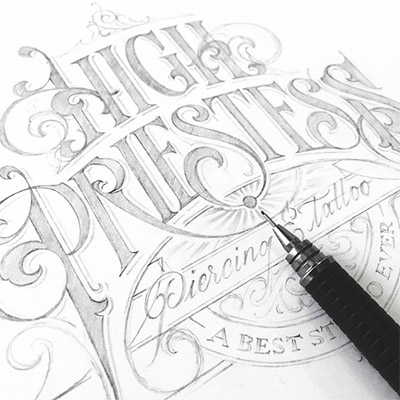 HIGH
PRIESTESS
Piercing & tattoo
A BEST